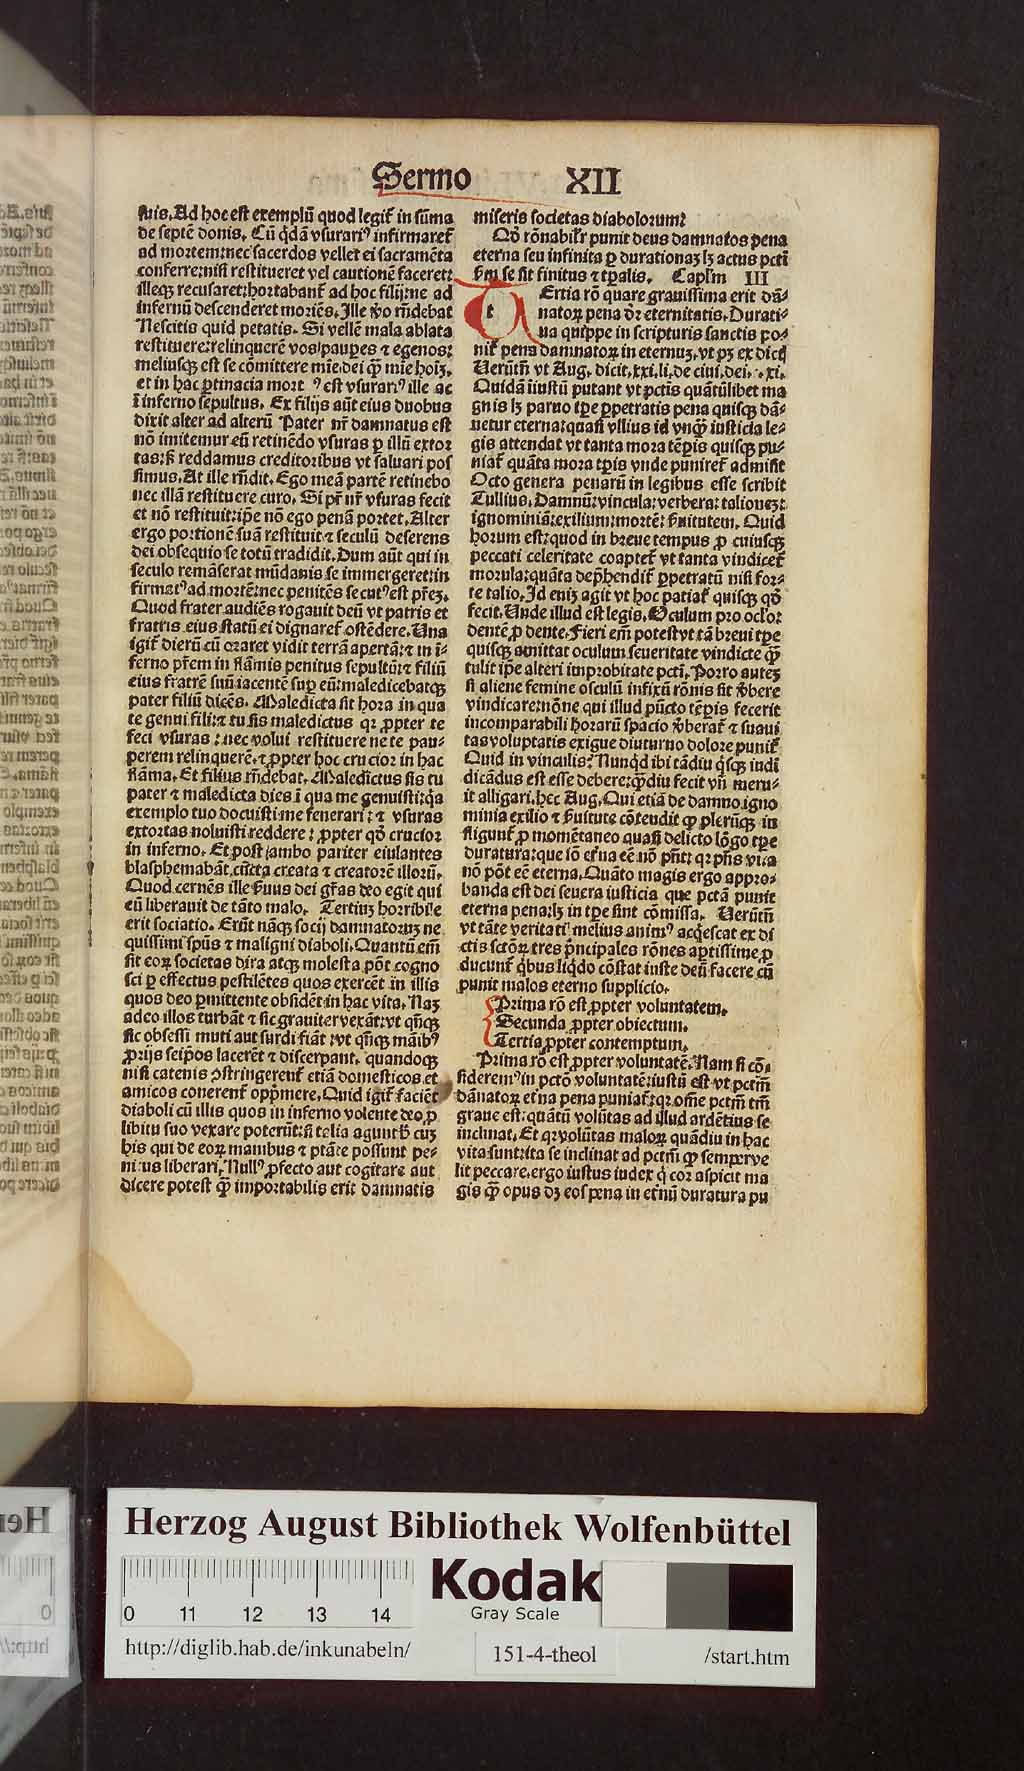 Sermo XII
suis. Ad hoc est exemplū quod legit̄ in sūma
de septē donis. Cū q̄dā vsurariꝰ infirmaret̄
ad mortem: nec sacerdos vellet ei sacramēta
conferre: nisi restitueret vel cautionē faceret:
illeqꝫ recusaret: hortabant̄ ad hoc filij: ne ad
infernū descenderet moriēs. Ille v̄o rn̄debat
Nescitis quid petatis. Si vellē mala ablata
restituere: relinquerē vos pauꝑes ⁊ egenos:
meliusqꝫ est se cōmittere mīe dei q̄ꝫ mīe hoīꝫ.
et in hac ꝑtinacia mortꝰ est vsurariꝰ ille ac
ī inferno sepultus. Ex filijs aūt eius duobus
dixit alter ad alterū Pater nr̄ damnatus est
nō imitemur eū retinēdo vsuras ꝑ illū extor
tas: sꝫ reddamus creditoribus vt saluari pos
simus. At ille rn̄dit. Ego meā partē retinebo
nec illā restituere curo. Si pr̄ nr̄ vsuras fecit
et nō restituit: ip̄e nō ego penā portet. Alter
ergo portionē suā restituit ⁊ seculū deserens
dei obsequio se totū tradidit. Dum aūt qui in
seculo remāserat mūdanis se immergeret: in
firmatꝰ ad mortē: nec penitēs secutꝰ est pr̄eꝫ.
Quod frater audiēs rogauit deū vt patris et
fratris eius statū ei dignaret̄ ostēdere. Una
igit̄ dierū cū oraret vidit terrā apertā: ⁊ in ī-
ferno pr̄em in flāmis penitus sepultū: ⁊ filiū
eius fratrē suū iacentē suꝑ eū: maledicebatqꝫ
pater filiū dicēs. Maledicta sit hora in qua
te genui fili: ⁊ tu sis maledictus qꝛ ꝓpter te
feci vsuras: nec volui restituere ne te pau-
perem relinquerē. ⁊ ꝓpter hoc crucior in hac
flāma. Et filius rn̄debat. Maledictus sis tu
pater ⁊ maledicta dies ī qua me genuisti: q̄a
exemplo tuo docuisti me fenerari: ⁊ vsuras
extortas noluisti reddere: ꝓpter qd̄ crucior
in inferno. Et post ambo pariter eiulantes
blasphemabāt cūcta creata ⁊ creatorē illorū.
Quod cernēs ille s̄uus dei gr̄as deo egit qui
eū liberauit de tāto malo. Tertiuꝫ horribile
erit sociatio. Erūt nāqꝫ socij damnatoruꝫ ne
quissimi spūs ⁊ maligni diaboli. Quantū em̄
sit eoꝝ societas dira atqꝫ molesta pōt cogno
sci ꝑ effectus pestilētes quos exercēt in illis
quos deo ꝑmittente obsidēt in hac vita. Naꝫ
adeo illos turbāt ⁊ sic grauiter vexāt: vt qn̄qꝫ
sic obsessi muti aut surdi fiāt: vt qn̄qꝫ māibꝰ
ꝓrijs seip̄os lacerēt ⁊ discerpant. quandoqꝫ
nisi catenis ꝯstringerent̄ etiā domesticos et
amicos conerent̄ opp̄mere. Quid igit̄ faciēt
diaboli cū illis quos in inferno volente deo ꝓ
libitu suo vexare poterūt: si talia agunt h̄ cuꝫ
his qui de eoꝝ manibus ⁊ ptāte possunt pe-
nitus liberari. Nullꝰ ꝓfecto aut cogitare aut
dicere potest q̄ꝫ importabilis erit damnatis
miseris societas diabolorum?
Qd̄ rōnabilr̄ punit deus damnatos pena
eterna seu infinita ꝑ durationaꝫ lꝫ actus pctī
s̄m se sit finitus ⁊ tꝑalis. Caplm̄ III
Tertia rō quare grauissima erit dā-
natoꝝ pena dr̄ eternitatis. Durati-
ua quippe in scripturis sanctis po-
nit̄ pena damnatoꝝ in eternuꝫ, vt pꝫ ex dictꝭ
Uerūtn̄ vt Aug. dicit. xxi. li. de ciui. dei. c. xi.
Quidā iniustū putant vt pctīs quātūlibet ma
gnis lꝫ paruo tp̄e ꝑpetratis pena quisqꝫ dā-
netur eterna: quasi vllius id vnqꝫ iusticia le-
gis attendat vt tanta mora tēpis quisqꝫ pu-
niat̄ quāta mora tp̄is vnde puniret̄ admisit
Octo genera penarū in legibus esse scribit
Tullius. Damnū: vincula: verbera: talioneꝫ:
ignominiā: exilium: mortē: s̄uitutem. Quid
horum est: quod in breue tempus ꝓ cuiusqꝫ
peccati celeritate coaptet̄ vt tanta vindicet̄
morula: quāta dep̄hendit̄ ꝑpetratū nisi for-
te talio. Id eniꝫ agit vt hoc patiat̄ quisqꝫ qd̄
fecit. Unde illud est legis. Oculum pro oclo:
dentē ꝓ dente. Fieri em̄ potest vt tā breui tp̄e
quisqꝫ amittat oculum seueritate vindicte q̄ꝫ
tulit ip̄e alteri improbitate pctī. Porro auteꝫ
si aliene femine osculū infixū rōnis sit v̄bere
vindicare: nōne qui illud pūcto tēpis fecerit
incomparabili horarū spacio v̄berat̄ ⁊ suaui
tas voluptatis exigue diuturno dolore punit̄
Quid in vinculis? Nunqd̄ ibi tādiu q̄sqꝫ iudi
dicādus est esse debere: q̄ꝫdiu fecit vn̄ meru-
it alligari. hec Aug. Qui etiā de damno. igno
minia exilio ⁊ s̄uitute cōtendit qꝫ plerūqꝫ in
fligunt̄ ꝓ momētaneo quasi delicto lōgo tp̄e
duratura: que iō et̄na eē nō pn̄t: qꝛ pn̄s vita
nō pōt eē eterna. Quāto magis ergo appro-
banda est dei seuera iusticia que pctā punit
eterna pena: lꝫ in tp̄e sint cōmissa. Uerūtn̄
vt tāte veritati melius animꝰ acq̄escat ex di
ctis sctōꝝ tres p̄ncipales rōnes aptissime ꝓ
ducunt̄ q̄bus liq̄do cōstat iuste deū facere cū
punit malos eterno supplicio.
Prima rō est ꝓpter voluntatem.
Secunda ꝓpter obiectum.
Tertia ꝓpter contemptum.
Prima rō est ꝓpter voluntatē. Nam si cō-
sideremꝰ in pctō voluntatē: iustū est vt pctm̄
dānatoꝝ et̄na pena puniat̄: qꝛ om̄e pctm̄ tm̄
graue est: quātū volūtas ad illud ardētius se
inclinat. Et qꝛ volūtas maloꝝ quādiu in hac
vita sunt: ita se inclinat ad pctm̄ qꝫ semper ve
lit peccare. ergo iustus iudex q̄ cor aspicit ma
gis q̄ꝫ opus dꝫ eos pena in et̄nū duratura pu
Herzog August Bibliothek Wolfenbüttel
0 11 12 13 14
Kodak
Gray Scale
http://diglib.hab.de/inkunabeln/
151-4-theol
/start.htm